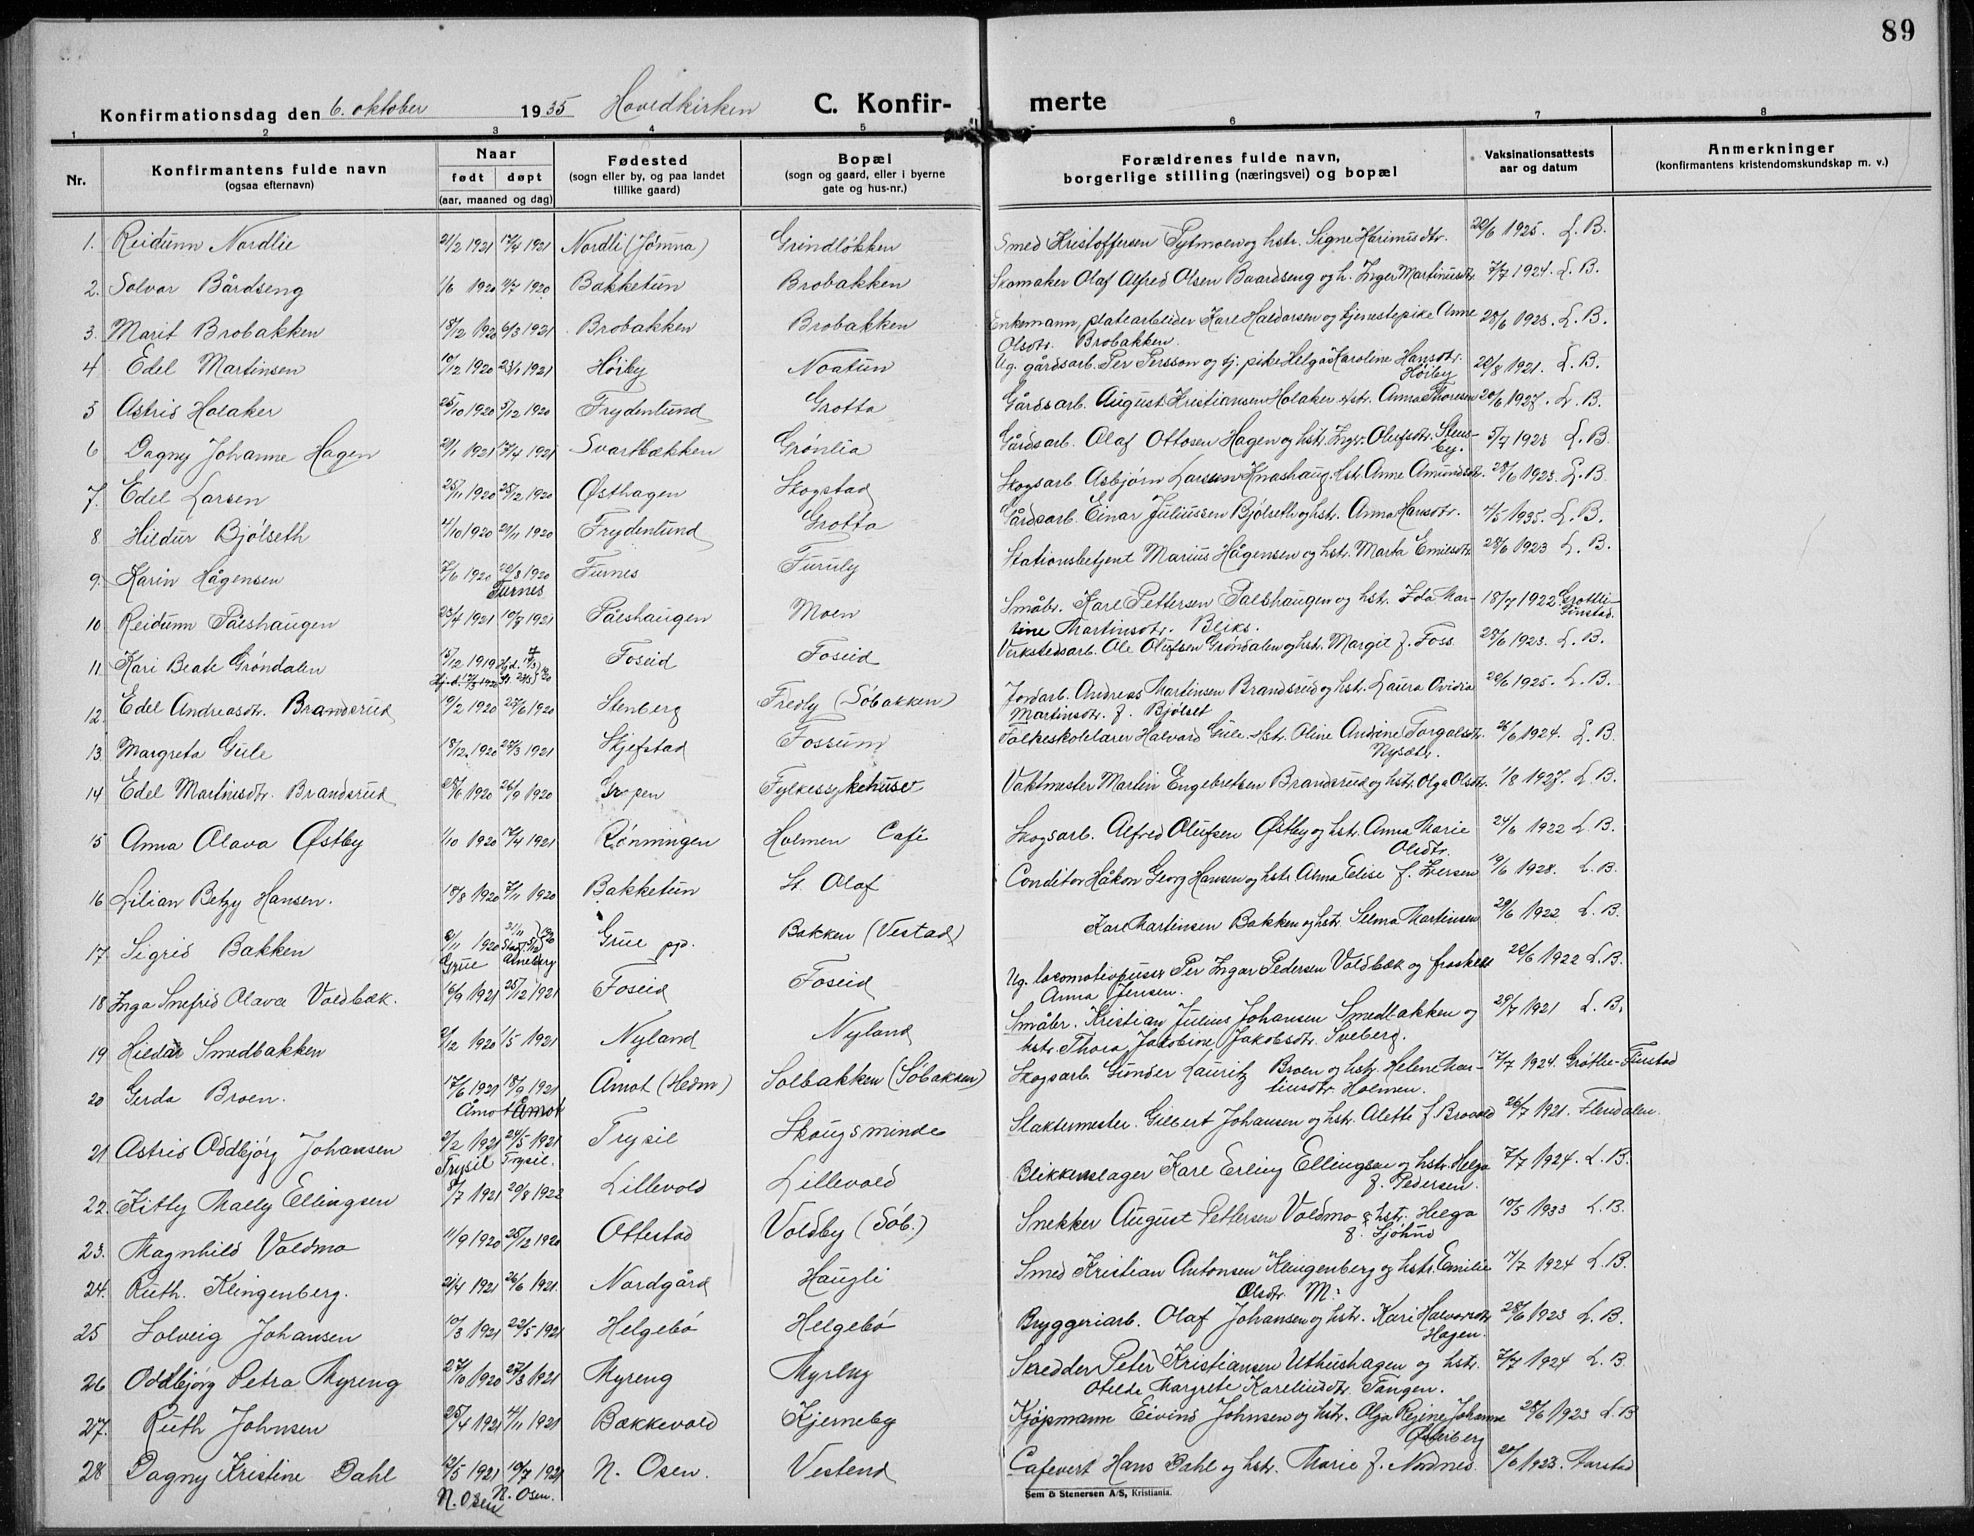 89
Konfirmationsdag den 6. oktober 1935 Hovedkirken C. Konfir- merte
1 2 3 4 5 6 7 8
Nr. Konfirmantens fulde navn (ogsaa efternavn) Naar født døpt (aar, maaned og dag) Fødested (sogn eller by, og paa landet tillike gaard) Bopæl (sogn og gaard, eller i byerne gate og hus-nr.) Forældrenes fulde navn, borgerlige stilling (næringsvei) og bopæl Vaksinationsattests aar og datum Anmerkninger (konfirmantens kristendomskundskap m. v.)
1. Reidunn Nordlie 21/2 1921 17/4 1921 Nordli (Jømna) Grindløkken Smed Kristoffersen Sytmoen og hstr. Signe Harinusdtr. 1925. L. B.
2. Solvor Bårdseng 1/6 1920 1920 Bakketun Brobakken Skomaker Olaf Alfred Olsen Baardseng og h. Inger Martinusdtr. 7/7 1924. L. B.
3. Marit Brobakken 1920 6/3 1921 Brobakken Brobakken Enkemann, platearbeider Karl Haldorsen og tjenestepike Anne 1923. L. B.
Olsdtr. Brobakken.
4 Edel Martinsen 10/12 1920 23/1 1921 Høiby Noatun Ug. gårdsarb. Per Persson og tj. pike Helga Karoline Hansdtr. 1921. L. B.
Høiby
5 Astrid Holaker 25/10 1920 5/12 1920 Frydenlund Grotta Gårdsarb. August Kristiansen Holaker hstr. Anna Thoresen 1927. L. B.
6 Dagny Johanne Hagen 1921 17/4 1921 Svartbækken Grønlia Gårdsarb. Olaf Ottosen Hagen og hstr. Ingr. Olufsdtr. Stens- 5/7 1923 L. B.
by.
7. Edel Larsen 25/11 1920 25/12 1920 Østhagen Skogstad Skogsarb. Asbjørn Larssen Knashaug. hstr. Anne Amundsdtr. 28/6 1923. L. B.
8 Hildur Bjølseth 4/10 1920 1920 Frydenlund Grotta Gårdsarb. Einar Juliussen Bjølseth og hstr. Anna Hansdtr. 4/5 1935. L. B.
9. Karin Hågensen 7/6 1920 1920 Furnes Furuly Stationsbetjent Marius Hågensen og hstr. Marta Emilsdtr. 28/6 1923 L. B.
Furnes
10 Reidunn Pålshaugen 23/4 1921 1921 Pålshaugen Moen Småbr. Karl Pettersen Palshaugen og hstr. Ida Mar- 18/7 1922 Grøtli-
tine Martinsdtr. Bliks.
11 Kari Beate Grøndalen 15/12 1919 Foseid Foseid Verkstedsarb. Ole Olufsen Grøndalen og hstr. Margit f. Foss 28/6 1923. L. B.
12. Edel Andreasdtr. Brandsrud 19/2 1920 27/6 1920 Stenberg Fredly (Søbakken) Jordarb. Andreas Martinsen Brandsrud og hstr. Laura Ovidia 1925. L. B.
Martinsdtr. f. Bjølset
13 Margreta Gule 18/12 1920 1921 Skjefstad Fossum Folkeskolelærer Halvard Gule. hstr. Oline Andrine Torgalsdtr. 26/6 1924. L. B.
Nysætr.
14 Edel Martinsdtr. Brandsrud 1920 26/9 1920 Gropen Fylkessykehuset Vaktmester Martin Engebretsen Brandsrud og hstr. Olga Olsdtr. 1/8 1927. L. B.
15 Anna Olava Østby 1/10 1920 17/4 1921 Rønningen Holmen Café Skogsarb. Alfred Olufsen Østby og hstr. Anna Marie 24/6 1922 L. B.
Olsdtr.
16 Lilian Betzy Hansen. 18/8 1920 7/11 1920 Bakketun St. Olaf Conditor Håkon Georg Hansen og hstr. Anna Elise f. Iversen 19/6 1928. L. B.
17. Sigrid Bakken 1920 Grue pgd. Bakken (Vestad) Karl Martinsen Bakken og hstr. Selma Martinsen 29/6 1922 L. B.
Grue
18 Inga Snefrid Olava Voldbæk. 16/9 1921 25/12 1921 Foseid Foseid Ug. locomotivpusser Per Ingar Pedersen Voldbæk og fraskilt 1922 L. B.
Anna Jensen.
19 Hildur Smedbakken 2/12 1920 1/5 1921 Nyland Nyland Småbr. Kristian Julius Johansen Smedbakken og 1921 L. B.
hstr. Thora Jakobine Jakobsdtr. Sveberg.
20 Gerda Broen. 17/6 1921 18/9 1921 Åmot (Hedm) Solbakken (Søbakken) Skogsarb. Gunder Lauritz Broen og hstr. Helene Mar- 17/7 1924. Grøtli-Finstad
tinsdtr. Holmen.
Åmot Åmot
21 Astrid Oddbjørg Johansen 2/2 1921 24/5 1921 Trysil Skougsminde Slaktermester. Gilbert Johansen og hstr. Alette f. Brovold 26/7 1921. Flendalen.
Trysil Trysil.
22. Kitty Mally Ellingsen 8/7 1921 20/8 1922 Lillevold Lillevold Blikkenslager Karl Erling Ellingsen og hstr. Helga 7/7 1924. L. B.
f. Pedersen.
23. Magnhild Voldmo 11/9 1920 26/12 1920 Ottestad Voldby (Søb.) Snekker August Pettersen Voldmo & hstr. Helga 10/5 1933 L. B.
24. Ruth. Klingenberg. 21/4 1921 26/6 1921. Nordgård Haugli Smed Kristian Antonsen Klingenberg og hstr. Emilie 7/7 1924 L. B.
Olsdtr. M:
25 Solveig Johansen 10/3 1921 22/5 1921 Helgebø Helgebø Bryggeriarb. Olaf Johansen og hstr. Kari Halvorsdtr. 28/6 1923 L. B.
Hagen.
26 Oddbjørg Petra Myreng 27/10 1920 27/3 1921 Myreng Myreng Skredder Peter Kristiansen Uthushagen og hstr. 7/7 1924 L. B.
Otilde Margrete Karelinsdtr. Tangen.
27. Ruth Johnsen 25/4 1921 1921 Bækkevold Kjerneby Kjøpmann Eivind Johnsen og hstr. Olga Regine Johanne 28/6 1923 L. B
Østerberg
28 Dagny Kristine Dahl 12/5 1921 10/7 1921 N. Osen. Vestend Cafevert Hans Dahl og hstr. Marie f. Nordnes. 1923. Aarstad
N. Osen N. Osen.
Sem & Stenersen A/S, Kristiania.